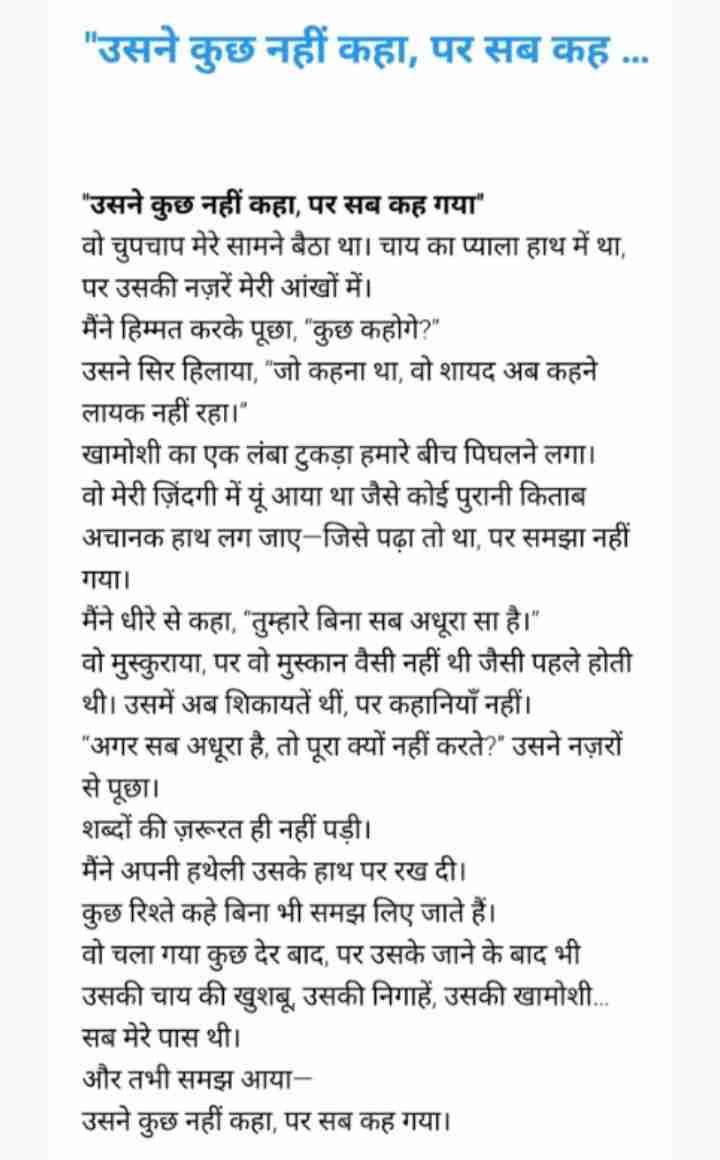 "उसने कुछ नहीं कहा, पर सब कह ...
"उसने कुछ नहीं कहा, पर सब कह गया"
वो चुपचाप मेरे सामने बैठा था। चाय का प्याला हाथ में था,
पर उसकी नज़रें मेरी आंखों में।
मैंने हिम्मत करके पूछा, "कुछ कहोगे?"
उसने सिर हिलाया, "जो कहना था, वो शायद अब कहने
लायक नहीं रहा।"
खामोशी का एक लंबा टुकड़ा हमारे बीच पिघलने लगा।
वो मेरी ज़िंदगी में यूं आया था जैसे कोई पुरानी किताब
अचानक हाथ लग जाए—जिसे पढ़ा तो था, पर समझा नहीं
गया।
मैंने धीरे से कहा, "तुम्हारे बिना सब अधूरा सा है।"
वो मुस्कुराया, पर वो मुस्कान वैसी नहीं थी जैसी पहले होती
थी। उसमें अब शिकायतें थीं, पर कहानियाँ नहीं।
"अगर सब अधूरा है, तो पूरा क्यों नहीं करते?" उसने नज़रों
से पूछा।
शब्दों की ज़रूरत ही नहीं पड़ी।
मैंने अपनी हथेली उसके हाथ पर रख दी।
कुछ रिश्ते कहे बिना भी समझ लिए जाते हैं।
वो चला गया कुछ देर बाद, पर उसके जाने के बाद भी
उसकी चाय की खुशबू, उसकी निगाहें, उसकी खामोशी...
सब मेरे पास थी।
और तभी समझ आया—
उसने कुछ नहीं कहा, पर सब कह गया।